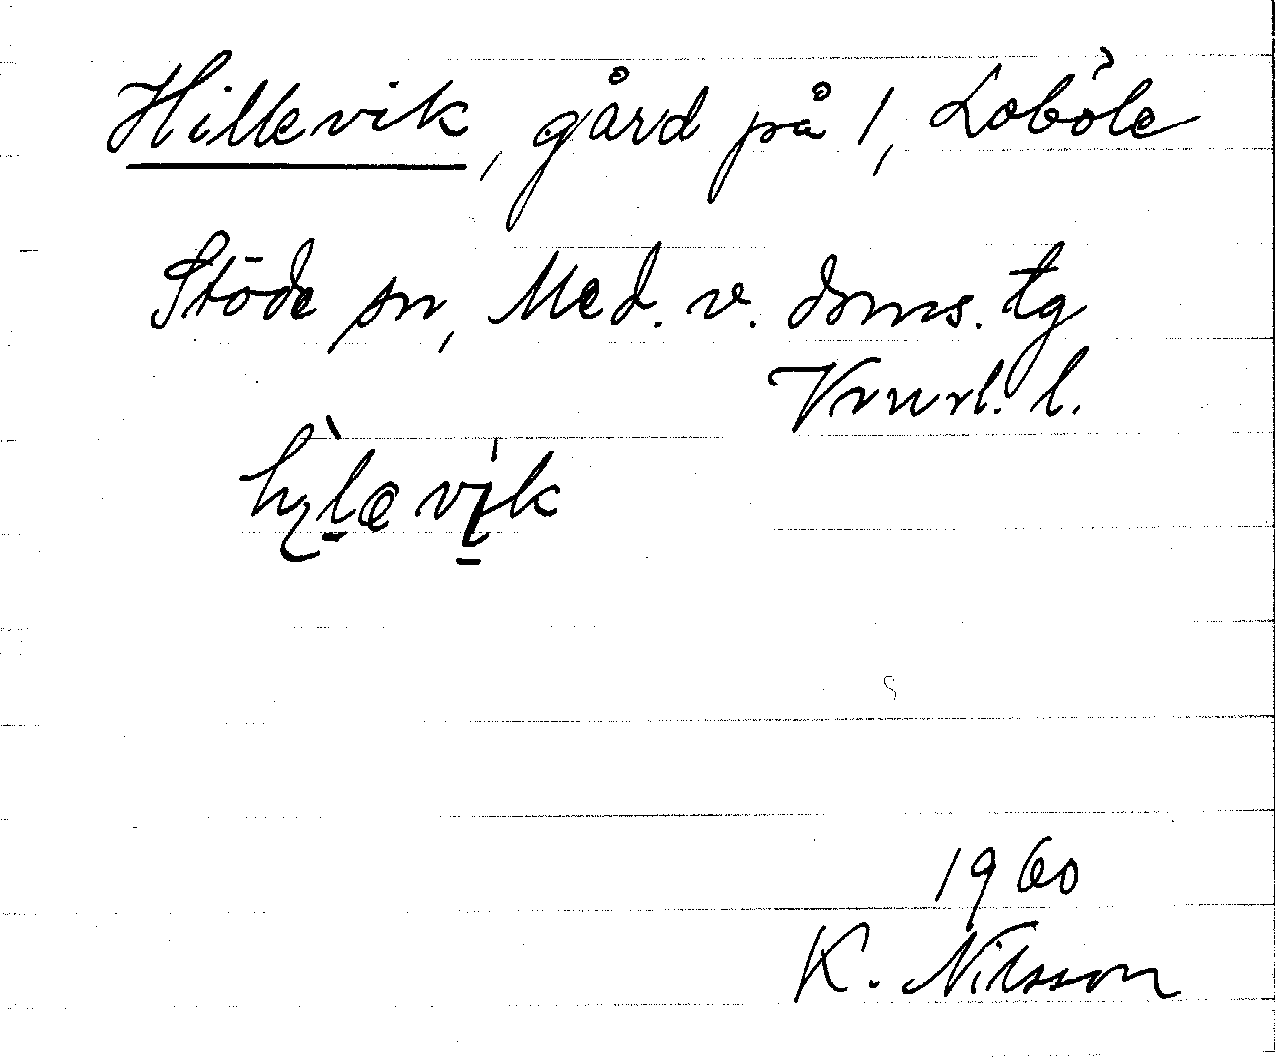 Hillevik, gård på 1, Loböle
Stöde sn, Med. v. doms. tg
Vnrl. l.
1960
K. Nilsson